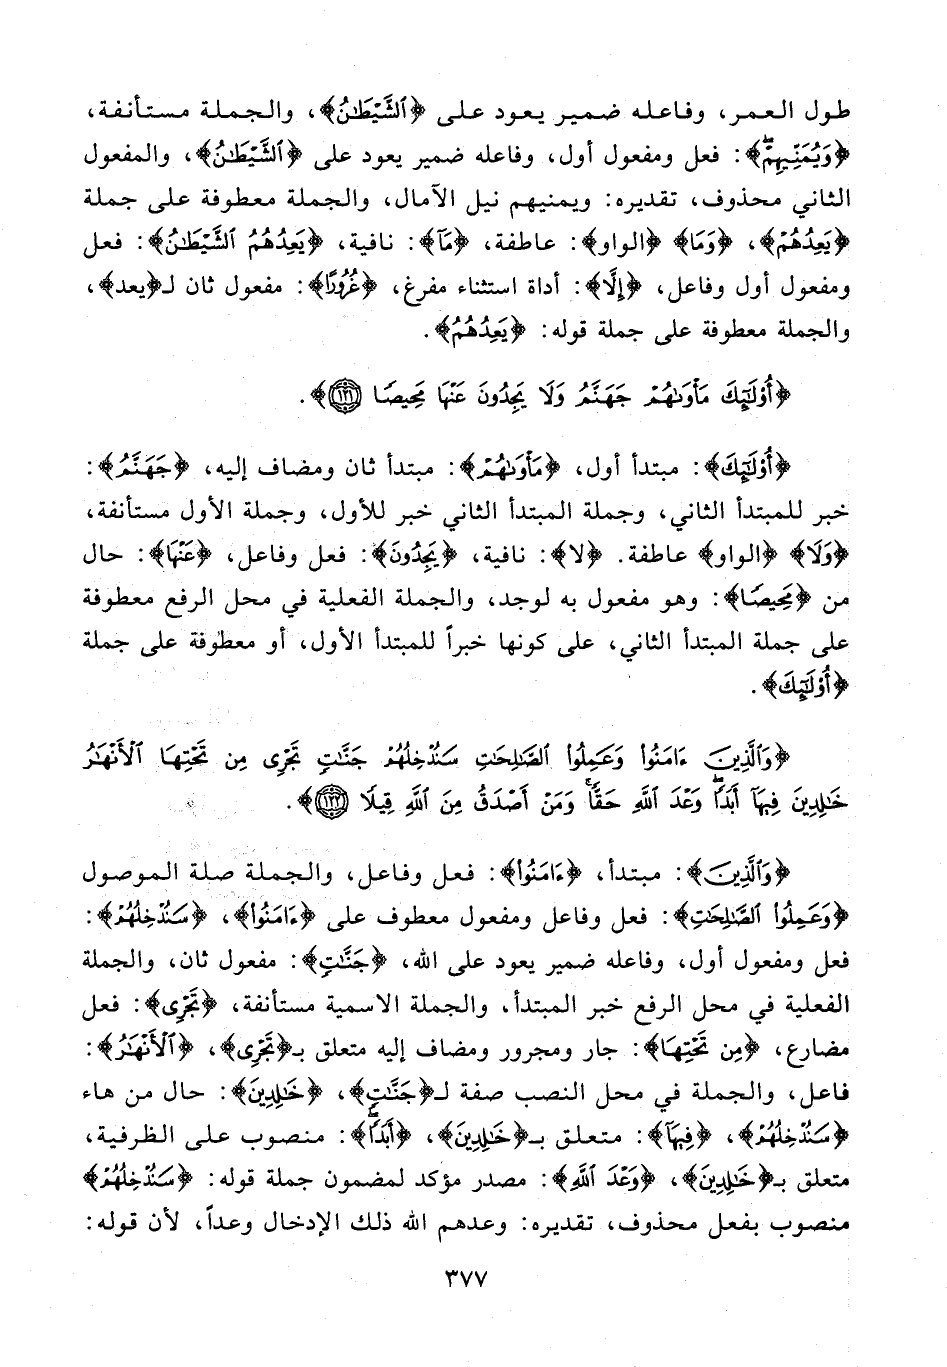 طول العمر، وفاعله ضمير يعود على ﴿ٱلشَّيۡطَٰنُ﴾، والجملة مستأنفة،
﴿وَيُمَنِّيهِمۡۖ﴾: فعل ومفعول أول، وفاعله ضمير يعود على ﴿ٱلشَّيۡطَٰنُ﴾، والمفعول
الثاني محذوف، تقديره: ويمنيهم نيل الآمال، والجملة معطوفة على جملة
﴿يَعِدُهُمۡ﴾، ﴿وَمَا﴾ ﴿الواو﴾: عاطفة، ﴿مَآ﴾: نافية، ﴿يَعِدُهُمُ ٱلشَّيۡطَٰنُ﴾: فعل
ومفعول أول وفاعل، ﴿إِلَّا﴾: أداة استثناء مفرغ، ﴿غُرُورًا﴾: مفعول ثان لـ﴿يعد﴾،
والجملة معطوفة على جملة قوله: ﴿يَعِدُهُمُ﴾.
﴿أُوْلَٰٓئِكَ مَأۡوَىٰهُمۡ جَهَنَّمُ وَلَا يَجِدُونَ عَنۡهَا مَحِيصٗا ١٢١﴾.
﴿أُوْلَٰٓئِكَ﴾: مبتدأ أول، ﴿مَأۡوَىٰهُمۡ﴾: مبتدأ ثان ومضاف إليه، ﴿جَهَنَّمُ﴾:
خبر للمبتدأ الثاني، وجملة المبتدأ الثاني خبر للأول، وجملة الأول مستأنفة،
﴿وَلَا﴾ ﴿الواو﴾ عاطفة. ﴿لا﴾: نافية، ﴿يَجِدُونَ﴾: فعل وفاعل، ﴿عَنۡهَا﴾: حال
من ﴿مَحِيصٗا﴾: وهو مفعول به لوجد، والجملة الفعلية في محل الرفع معطوفة
على جملة المبتدأ الثاني، على كونها خبراً للمبتدأ الأول، أو معطوفة على جملة
﴿أُوْلَٰٓئِكَ﴾.
﴿وَٱلَّذِينَ ءَامَنُواْ وَعَمِلُواْ ٱلصَّٰلِحَٰتِ سَنُدۡخِلُهُمۡ جَنَّٰتٖ تَجۡرِي مِن تَحۡتِهَا ٱلۡأَنۡهَٰرُ
خَٰلِدِينَ فِيهَآ أَبَدٗاۖ وَعۡدَ ٱللَّهِ حَقّٗاۚ وَمَنۡ أَصۡدَقُ مِنَ ٱللَّهِ قِيلٗا ١٢٢﴾.
﴿وَٱلَّذِينَ﴾: مبتدأ، ﴿ءَامَنُواْ﴾: فعل وفاعل، والجملة صلة الموصول
﴿وَعَمِلُواْ ٱلصَّٰلِحَٰتِ﴾: فعل وفاعل ومفعول معطوف على ﴿ءَامَنُواْ﴾، ﴿سَنُدۡخِلُهُمۡ﴾:
فعل ومفعول أول، وفاعله ضمير يعود على الله، ﴿جَنَّٰتٖ﴾: مفعول ثان، والجملة
الفعلية في محل الرفع خبر المبتدأ، والجملة الاسمية مستأنفة، ﴿تَجۡرِي﴾: فعل
مضارع، ﴿مِن تَحۡتِهَا﴾: جار ومجرور ومضاف إليه متعلق بـ﴿تَجۡرِي﴾، ﴿ٱلۡأَنۡهَٰرُ﴾:
فاعل، والجملة في محل النصب صفة لـ﴿جَنَّٰتٖ﴾، ﴿خَٰلِدِينَ﴾: حال من هاء
﴿سَنُدۡخِلُهُمۡ﴾، ﴿فِيهَآ﴾: متعلق بـ﴿خَٰلِدِينَ﴾، ﴿أَبَدٗاۖ﴾: منصوب على الظرفية،
متعلق بـ﴿خَٰلِدِينَ﴾، ﴿وَعۡدَ ٱللَّهِ﴾: مصدر مؤكد لمضمون جملة قوله: ﴿سَنُدۡخِلُهُمۡ﴾
منصوب بفعل محذوف، تقديره: وعدهم الله ذلك الإدخال وعداً، لأن قوله:
٣٧٧